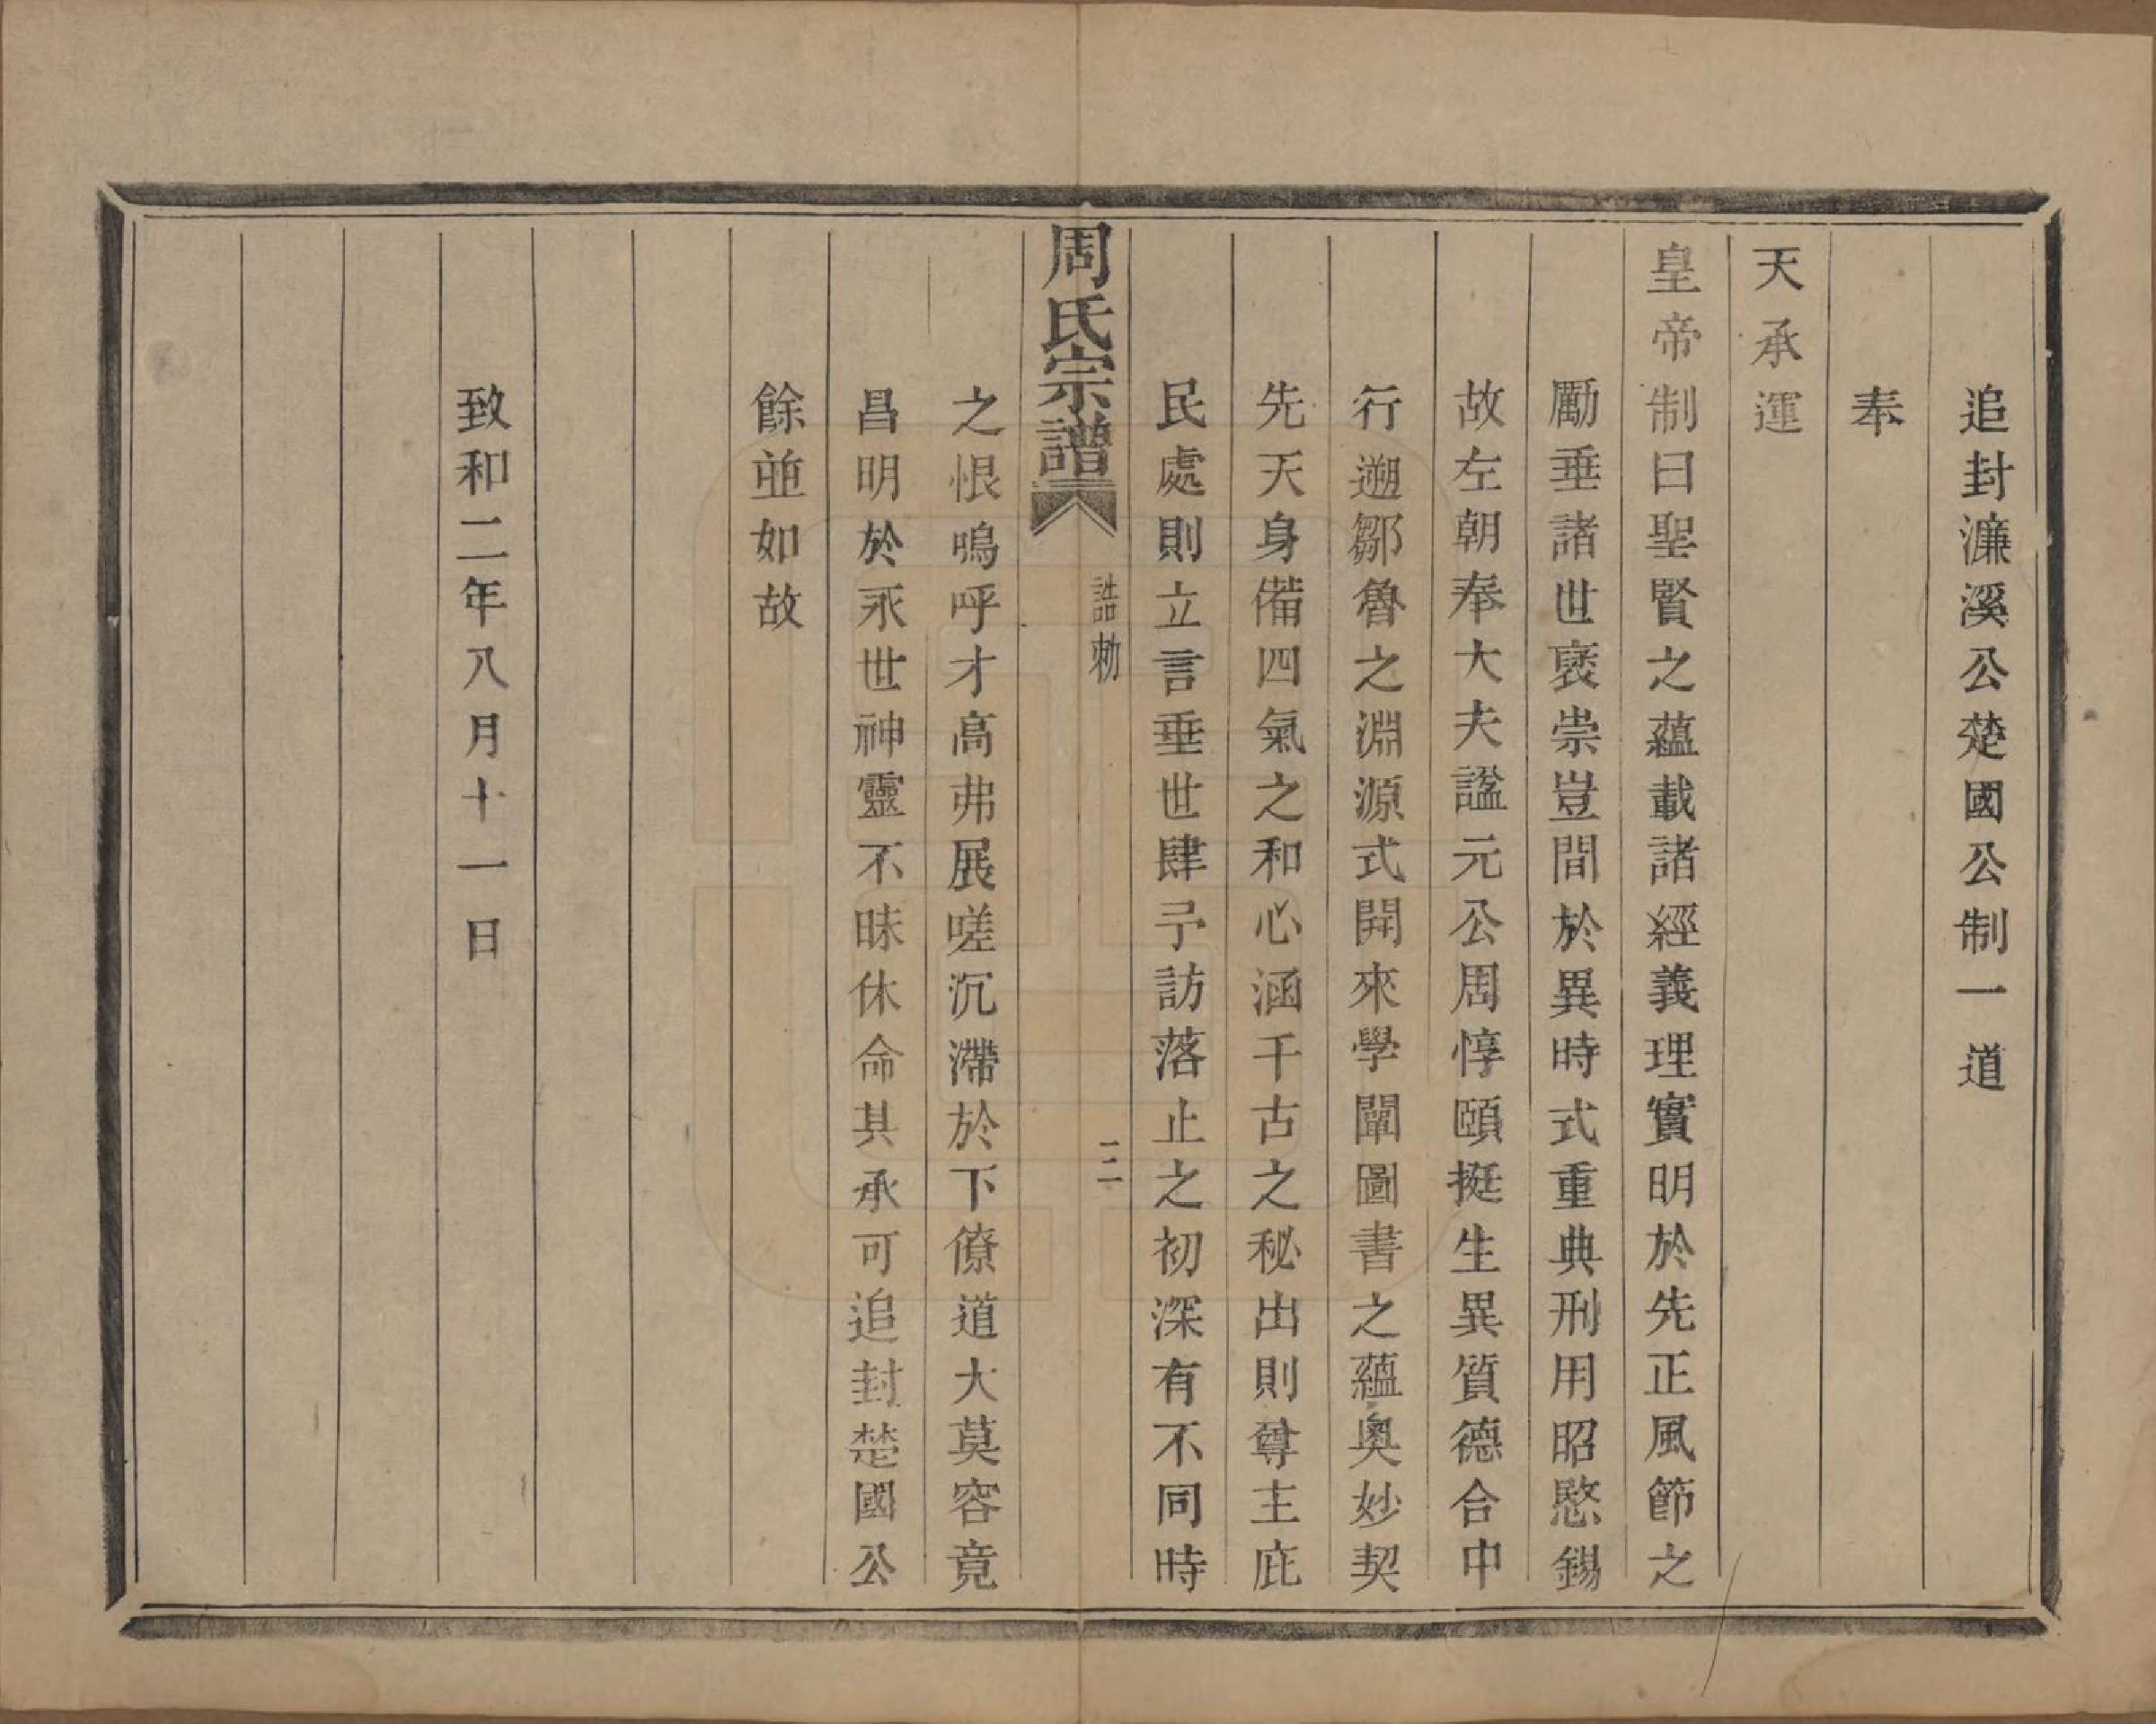 追封濂溪公楚國公制一道
奉
天承運
皇帝制曰聖賢之蘊載諸經義理實明於先正風節之
勵垂諸世褎崇豈間於異時式重典刑用昭愍錫
故左朝奉大夫諡元公周惇頤挺生異質德合中
行遡鄒魯之淵源式開來學闡圖書之蘊奧妙契
先天身備四氣之和心涵千古之秘出則尊主庇
民處則立言垂世肆予訪落止之初深有不同時
周氏宗譜
誥勅
二
之恨嗚呼才高弗展嗟沉滯於下僚道大莫容竟
昌明於永世神靈不昧休命其承可追封楚國公
餘並如故
致和二年八月十一日